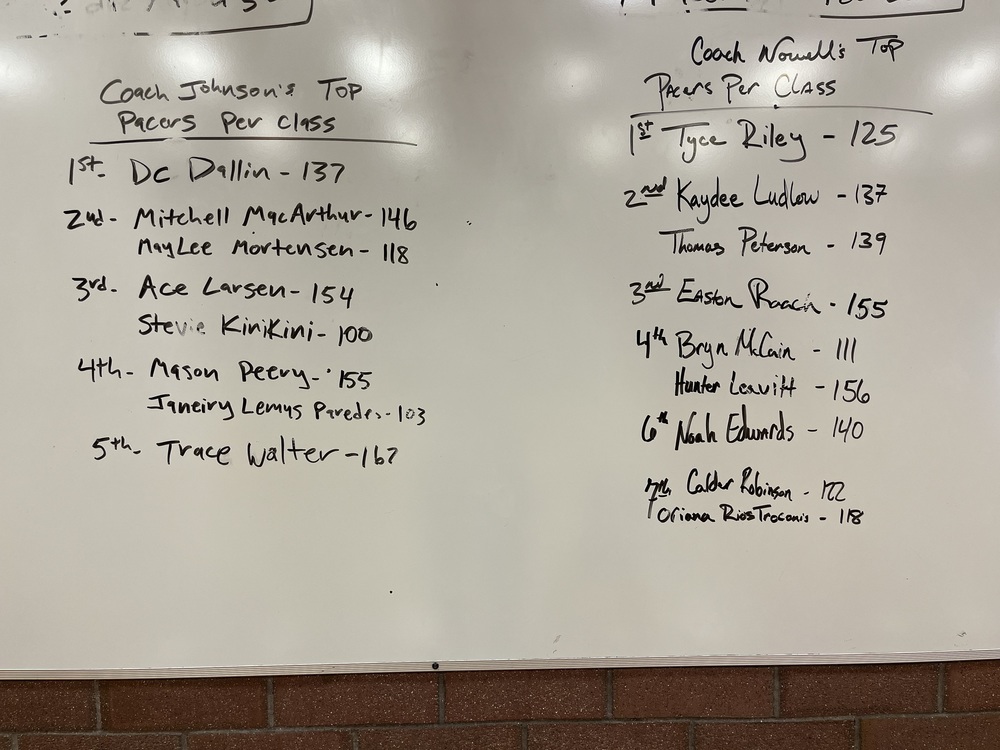 Coach Johnson's Top
Pacers Per Class
1st- Dc Dallin - 137
2nd- Mitchell MacArthur- 146
MayLee Mortensen - 118
3rd- Ace Larsen - 154
Stevie KiniKini- 100
4th- Mason Peery- 155
Janeiry Lemus Paredes - 103
5th- Trace Walter - 167
Coach Nowell's Top
Pacers Per Class
1st Tyce Riley - 125
2nd Kaydee Ludlow - 137
Thomas Peterson - 139
3rd Easton - 155
4th Bryn McCain - 111
Hunter Leavitt - 156
6th Noah Edwards - 140
7th Calder Robinson - 122
Oriana Rios Troconis - 118